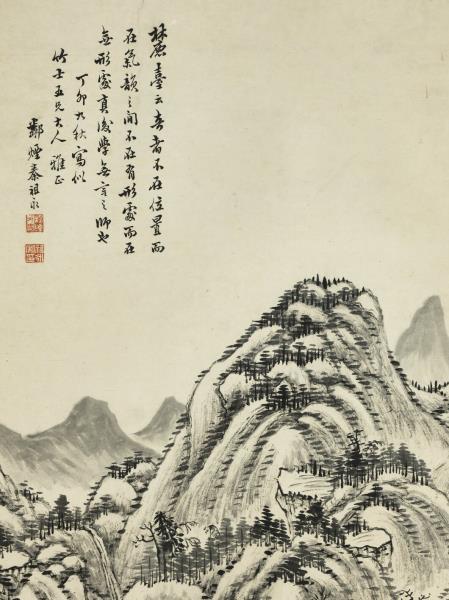 麓臺云奇者不在位置而
在氣韻之間不在有形處而在
無形處真後學無言之師也
丁卯九秋寫似
竹士五兄大人雅正
鄰煙秦祖永